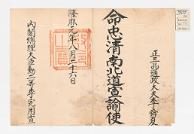 正三品通政大夫
命忠清南北道宣諭使
隆熙元年八月二十六日
內閣總理大臣勳二等李完用宣